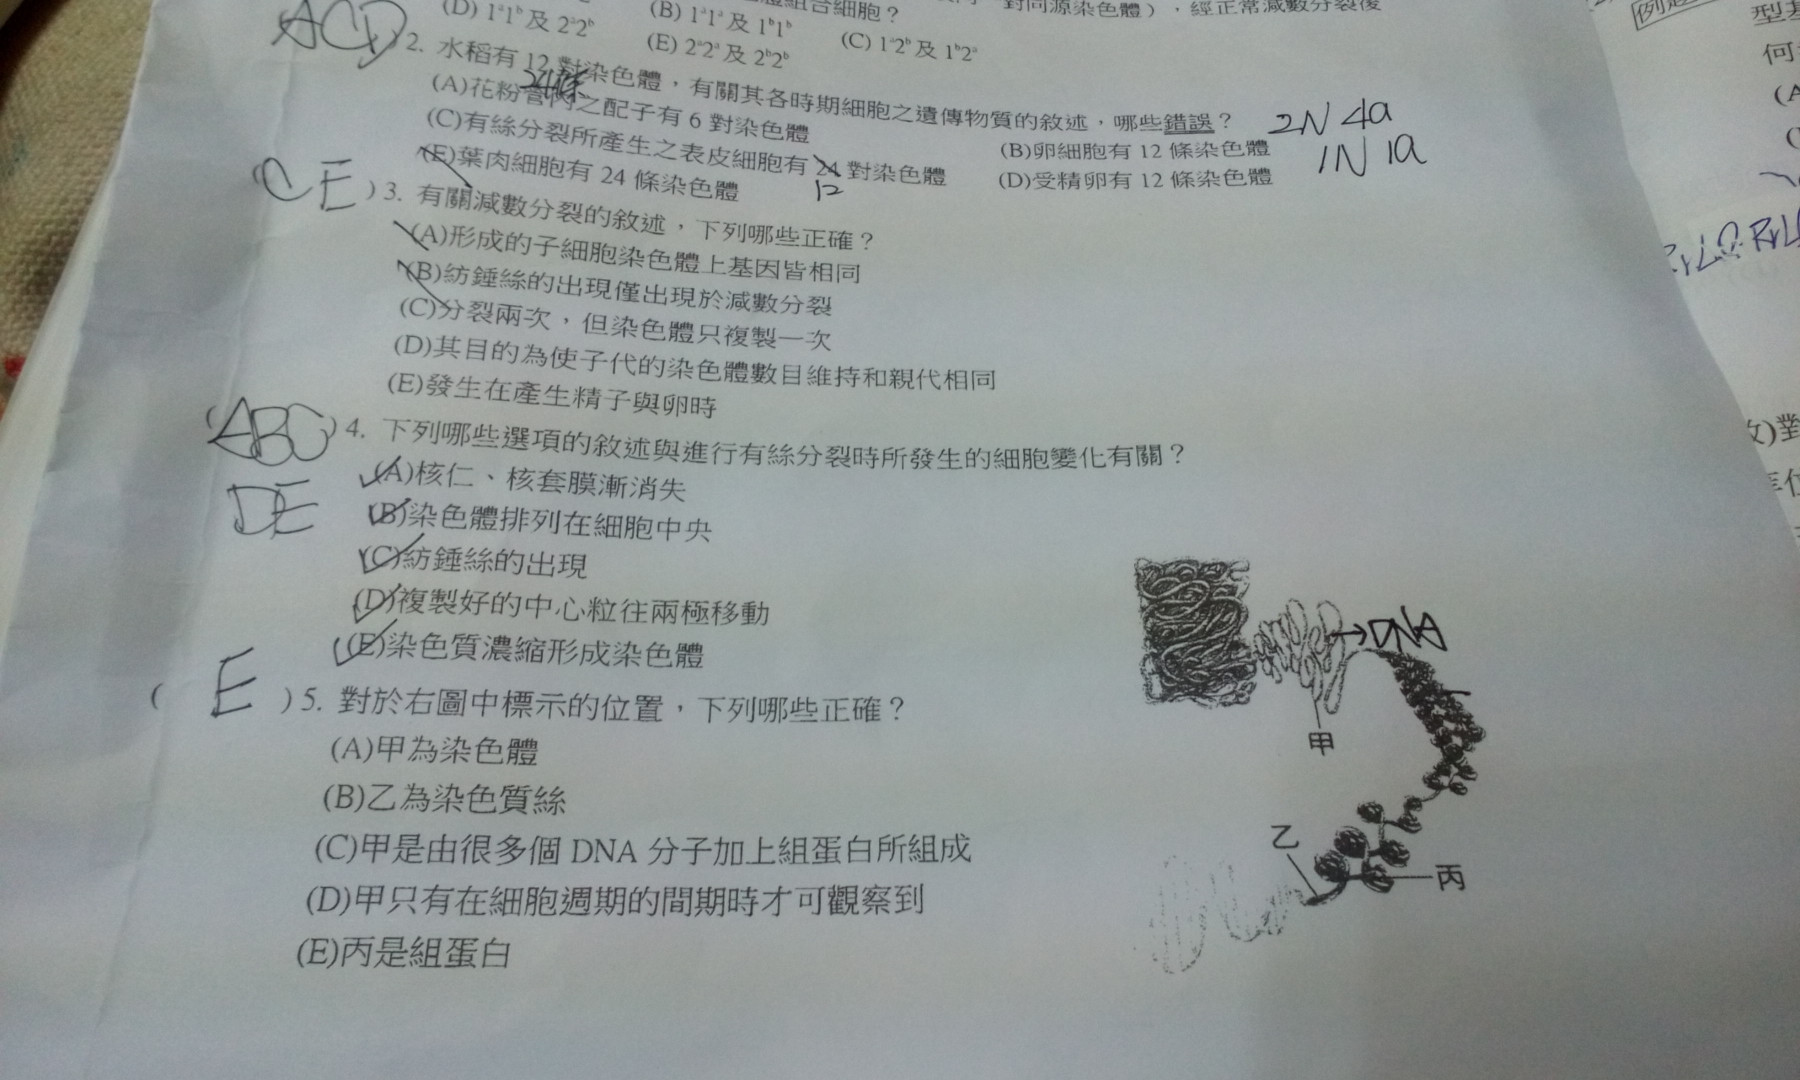 (D) 1ᵃ1ᵇ及 2ᵃ2ᵇ
(B) 1ᵃ1ᵃ及 1ᵇ1ᵇ
組合細胞?
對同源染色體),經正常減數分裂後
(E) 2ᵃ2ᵃ及 2ᵇ2ᵇ
(C) 1ᵃ2ᵇ及 1ᵇ2ᵃ
ACD) 2. 水稻有 12 對染色體,有關其各時期細胞之遺傳物質的敘述,哪些錯誤?
24條
2N 4a
1N 1a
(A)花粉管內之配子有 6 對染色體
(B)卵細胞有 12 條染色體
(C)有絲分裂所產生之表皮細胞有 24 對染色體
12
(D)受精卵有 12 條染色體
(E)葉肉細胞有 24 條染色體
(CE) 3. 有關減數分裂的敘述,下列哪些正確?
(A)形成的子細胞染色體上基因皆相同
(B)紡錘絲的出現僅出現於減數分裂
(C)分裂兩次,但染色體只複製一次
(D)其目的為使子代的染色體數目維持和親代相同
(E)發生在產生精子與卵時
(ABC) 4. 下列哪些選項的敘述與進行有絲分裂時所發生的細胞變化有關?
DE
(A)核仁、核套膜漸消失
(B)染色體排列在細胞中央
(C)紡錘絲的出現
(D)複製好的中心粒往兩極移動
(E)染色質濃縮形成染色體
( E ) 5. 對於右圖中標示的位置,下列哪些正確?
(A)甲為染色體
(B)乙為染色質絲
(C)甲是由很多個 DNA 分子加上組蛋白所組成
(D)甲只有在細胞週期的間期時才可觀察到
(E)丙是組蛋白
→DNA
甲
乙
丙
型基
何
(A